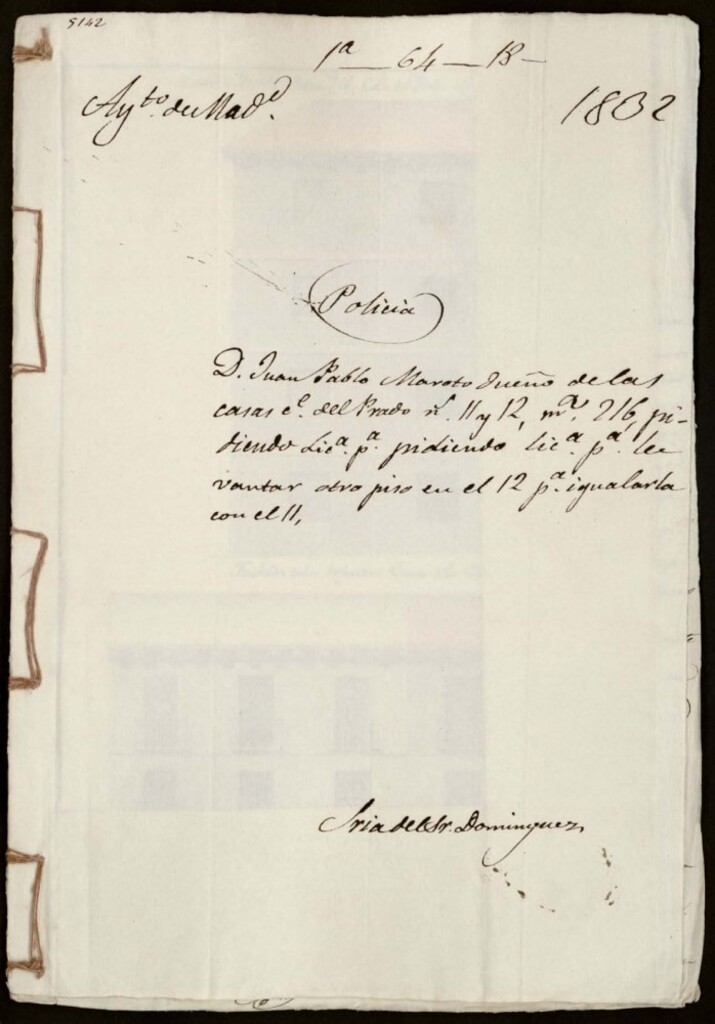 5142
1ª — 64 — 18 —
Ayto. de Madd.
1832
Policia
D. Juan Pablo Maroto dueño de las
casas ce. del Prado ns. 11 y 12, mna. 216, pi-
diendo Lica. pa. pidiendo lica. pa. le
vantar otro piso en el 12 pa. igualarla
con el 11,
Sria del Sr. Dominguez